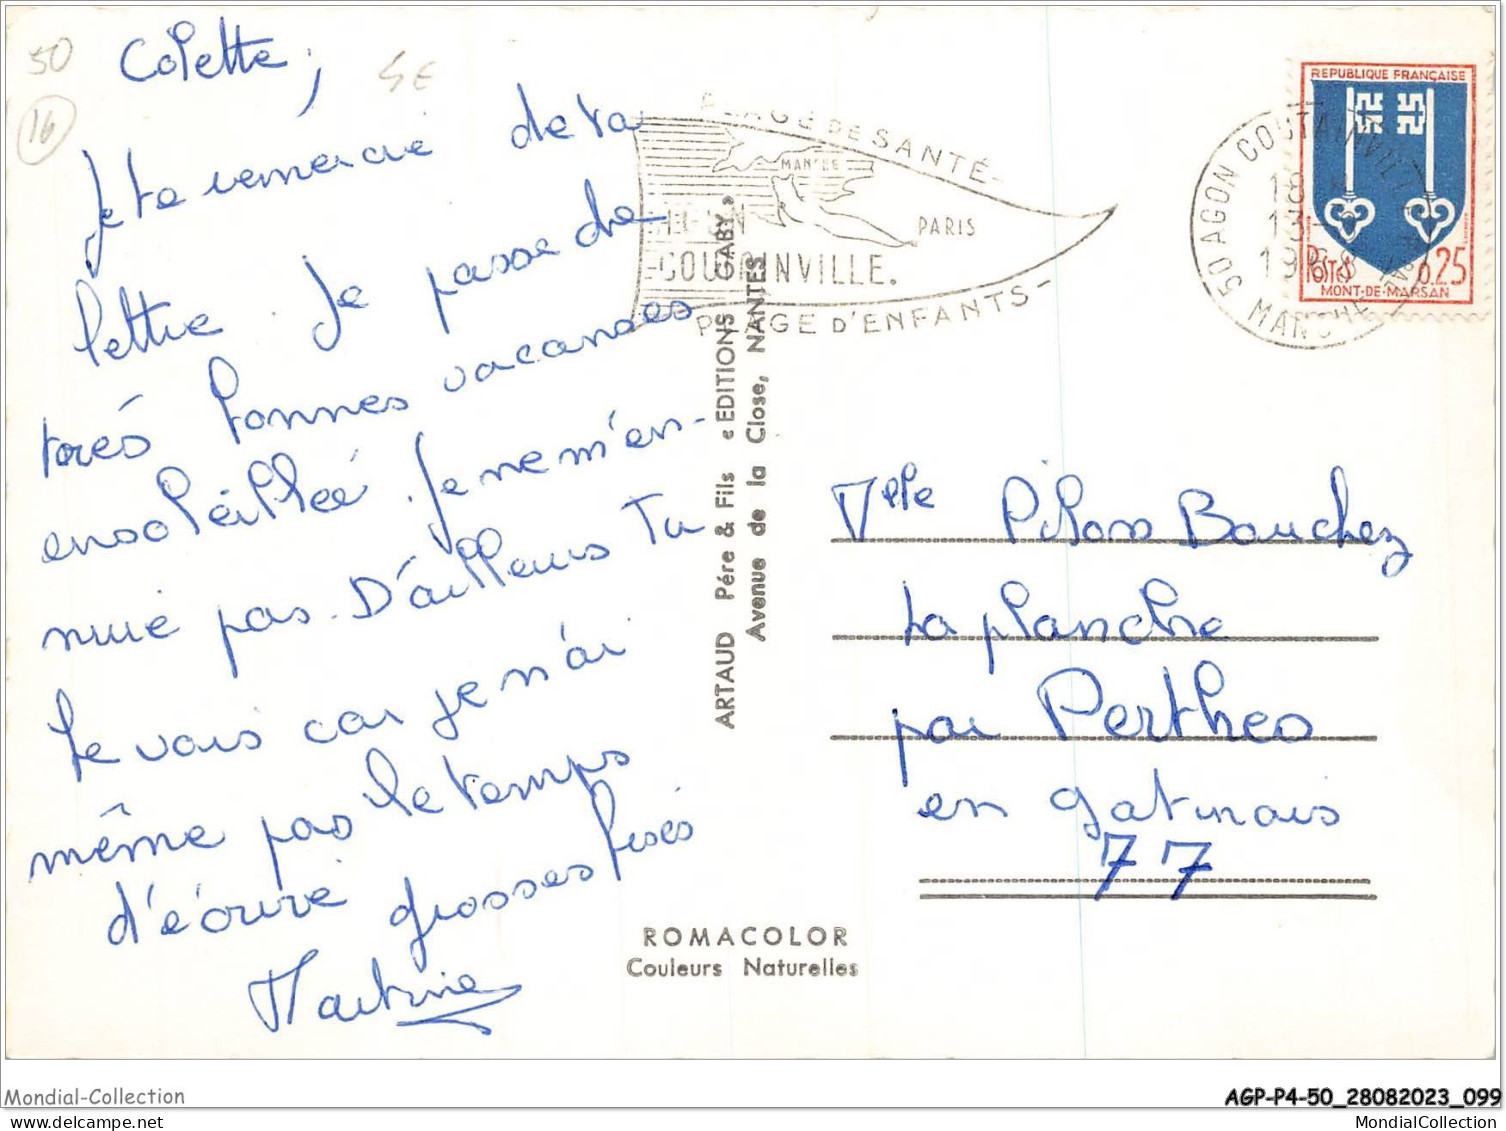 50
16
SE
Colette,
Je te remercie de ta
lettre. Je passe de
très bonnes vacances
ensoleillée. Je ne m'en-
nuie pas. D'ailleurs Tu
le vois car je n'ai
même pas le temps
d'écrire grosses bises
Martine
PLAGE DE SANTÉ -
MANCHE
PARIS
COUTAINVILLE.
PLAGE D'ENFANTS -
ARTAUD Père & Fils « EDITIONS GABY »
Avenue de la Close, NANTES
50 AGON COUTAINVILLE
18 H
13-
196
MANCHE
REPUBLIQUE FRANÇAISE
POSTES 0,25
MONT-DE-MARSAN
Melle Piloss Bouchez
La planche
par Perthes
en gatinais
77
ROMACOLOR
Couleurs Naturelles
Mondial-Collection
AGP-P4-50_28082023_099
MondialCollection